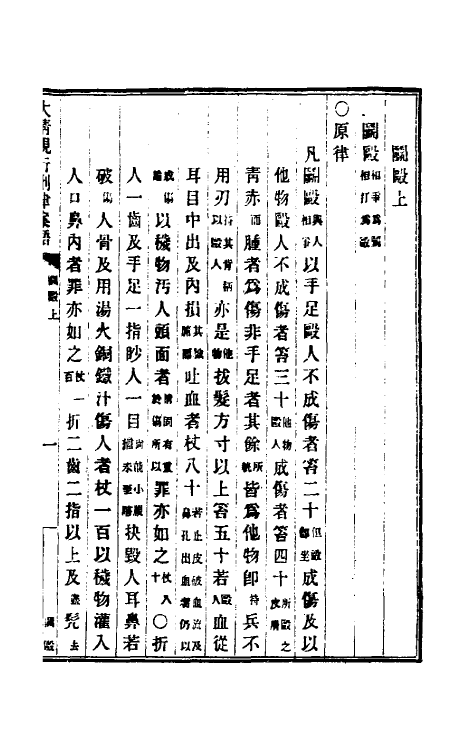 鬬毆上
鬬毆相爭爲鬬相打爲毆
〇原律
凡鬬毆與人相爭以手足毆人不成傷者笞二十但毆即坐成傷及以
他物毆人不成傷者笞三十他物毆人成傷者笞四十所毆之皮膚
青赤而腫者爲傷非手足者其餘所執皆爲他物卽持兵不
用刃持其背柄以毆人亦是他物拔髮方寸以上笞五十若毆人血從
耳目中出及內損其臟腑吐血者杖八十若止皮破血流及鼻孔出血者仍以
成傷論以穢物污人頭面者情固有重於傷所以罪亦如之杖八十〇折
人一齒及手足一指眇人一目尚能小視猶未至瞎抉毀人耳鼻若
破傷人骨及用湯火銅鐵汁傷人者杖一百以穢物灌入
人口鼻內者罪亦如之杖一百折二齒二指以上及盡髠去
大清現行刑律案語
鬬毆上
一
鬬毆